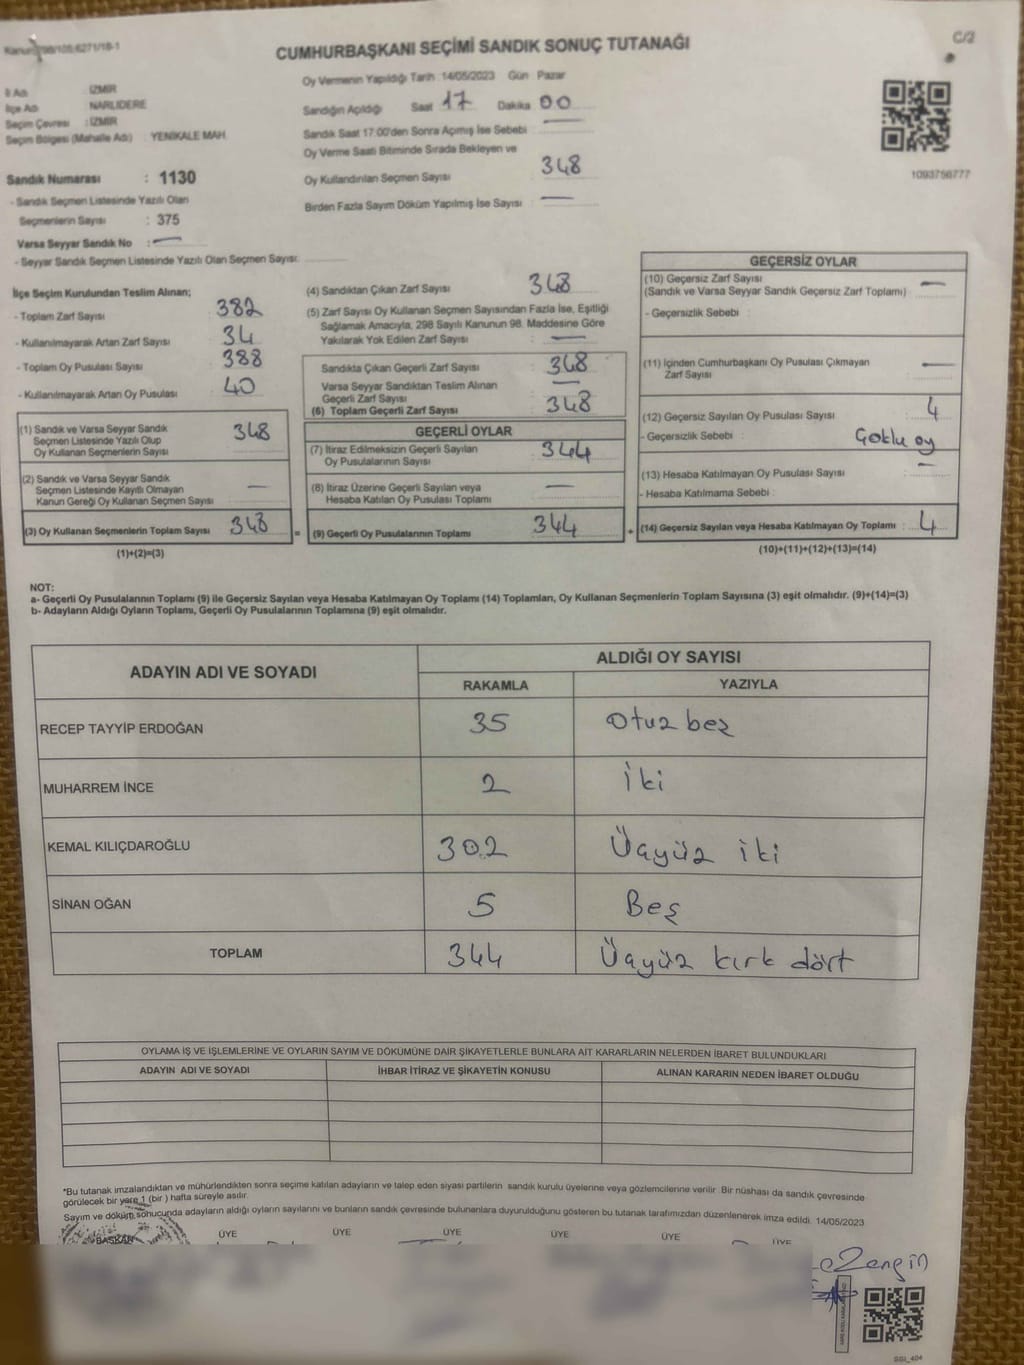 Kanun:298/105,6271/18-1
C/2
CUMHURBAŞKANI SEÇİMİ SANDIK SONUÇ TUTANAĞI
İl Adı : İZMİR
İlçe Adı : NARLIDERE
Seçim Çevresi : İZMİR
Seçim Bölgesi (Mahalle Adı) : YENİKALE MAH.
Sandık Numarası : 1130
- Sandık Seçmen Listesinde Yazılı Olan
Seçmenlerin Sayısı : 375
Varsa Seyyar Sandık No : —
- Seyyar Sandık Seçmen Listesinde Yazılı Olan Seçmen Sayısı:
Oy Vermenin Yapıldığı Tarih :14/05/2023 Gün Pazar
Sandığın Açıldığı Saat 17 Dakika 00
Sandık Saat 17:00'den Sonra Açımış İse Sebebi —
Oy Verme Saati Bitiminde Sırada Bekleyen ve
Oy Kullandırılan Seçmen Sayısı 348
Birden Fazla Sayım Döküm Yapılmış İse Sayısı —
1093756777
İlçe Seçim Kurulundan Teslim Alınan;
- Toplam Zarf Sayısı 382
- Kullanılmayarak Artan Zarf Sayısı 34
- Toplam Oy Pusulası Sayısı 388
- Kullanılmayarak Artan Oy Pusulası 40
(1) Sandık ve Varsa Seyyar Sandık
Seçmen Listesinde Yazılı Olup
Oy Kullanan Seçmenlerin Sayısı 348
(2) Sandık ve Varsa Seyyar Sandık
Seçmen Listesinde Kayıtlı Olmayan
Kanun Gereği Oy Kullanan Seçmen Sayısı —
(3) Oy Kullanan Seçmenlerin Toplam Sayısı 348
(1)+(2)=(3)
(4) Sandıktan Çıkan Zarf Sayısı 348
(5) Zarf Sayısı Oy Kullanan Seçmen Sayısından Fazla İse, Eşitliği
Sağlamak Amacıyla, 298 Sayılı Kanunun 98. Maddesine Göre
Yakılarak Yok Edilen Zarf Sayısı —
Sandıkta Çıkan Geçerli Zarf Sayısı 348
Varsa Seyyar Sandıktan Teslim Alınan
Geçerli Zarf Sayısı —
(6) Toplam Geçerli Zarf Sayısı 348
GEÇERLİ OYLAR
(7) İtiraz Edilmeksizin Geçerli Sayılan
Oy Pusulalarının Sayısı 344
(8) İtiraz Üzerine Geçerli Sayılan veya
Hesaba Katılan Oy Pusulası Toplamı —
= (9) Geçerli Oy Pusulalarının Toplamı 344
GEÇERSİZ OYLAR
(10) Geçersiz Zarf Sayısı —
(Sandık ve Varsa Seyyar Sandık Geçersiz Zarf Toplamı)
- Geçersizlik Sebebi :
(11) İçinden Cumhurbaşkanı Oy Pusulası Çıkmayan
Zarf Sayısı —
(12) Geçersiz Sayılan Oy Pusulası Sayısı 4
- Geçersizlik Sebebi : Çoklu oy
(13) Hesaba Katılmayan Oy Pusulası Sayısı —
- Hesaba Katılmama Sebebi :
+ (14) Geçersiz Sayılan veya Hesaba Katılmayan Oy Toplamı : 4
(10)+(11)+(12)+(13)=(14)
NOT:
a- Geçerli Oy Pusulalarının Toplamı (9) ile Geçersiz Sayılan veya Hesaba Katılmayan Oy Toplamı (14) Toplamları, Oy Kullanan Seçmenlerin Toplam Sayısına (3) eşit olmalıdır. (9)+(14)=(3)
b- Adayların Aldığı Oyların Toplamı, Geçerli Oy Pusulalarının Toplamına (9) eşit olmalıdır.
ADAYIN ADI VE SOYADI ALDIĞI OY SAYISI
RAKAMLA YAZIYLA
RECEP TAYYİP ERDOĞAN 35 Otuz beş
MUHARREM İNCE 2 İki
KEMAL KILIÇDAROĞLU 302 Üçyüz iki
SİNAN OĞAN 5 Beş
TOPLAM 344 Üçyüz kırk dört
OYLAMA İŞ VE İŞLEMLERİNE VE OYLARIN SAYIM VE DÖKÜMÜNE DAİR ŞİKAYETLERLE BUNLARA AİT KARARLARIN NELERDEN İBARET BULUNDUKLARI
ADAYIN ADI VE SOYADI İHBAR İTİRAZ VE ŞİKAYETİN KONUSU ALINAN KARARIN NEDEN İBARET OLDUĞU
*Bu tutanak imzalandıktan ve mühürlendikten sonra seçime katılan adayların ve talep eden siyasi partilerin sandık kurulu üyelerine veya gözlemcilerine verilir. Bir nüshası da sandık çevresinde
görülecek bir yere 1 (bir) hafta süreyle asılır.
Sayım ve döküm sonucunda adayların aldığı oyların sayılarını ve bunların sandık çevresinde bulunanlara duyurulduğunu gösteren bu tutanak tarafımızdan düzenlenerek imza edildi. 14/05/2023
BAŞKAN ÜYE ÜYE ÜYE ÜYE ÜYE ÜYE